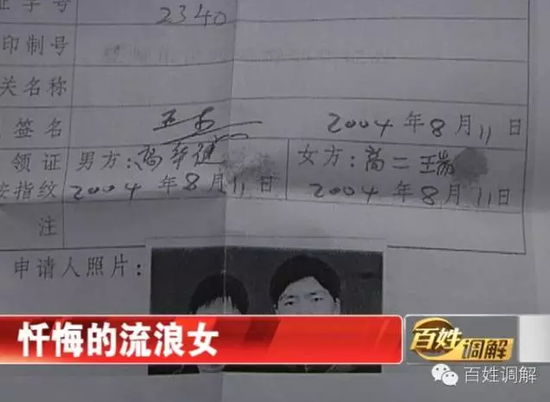 证字号 2340
印制号
关名称
签名 2004年8月11日
领证 男方: 女方:高二瑞
按指纹 2004年8月11日 2004年8月11日
注
申请人照片:
忏悔的流浪女
百姓调解
百姓调解